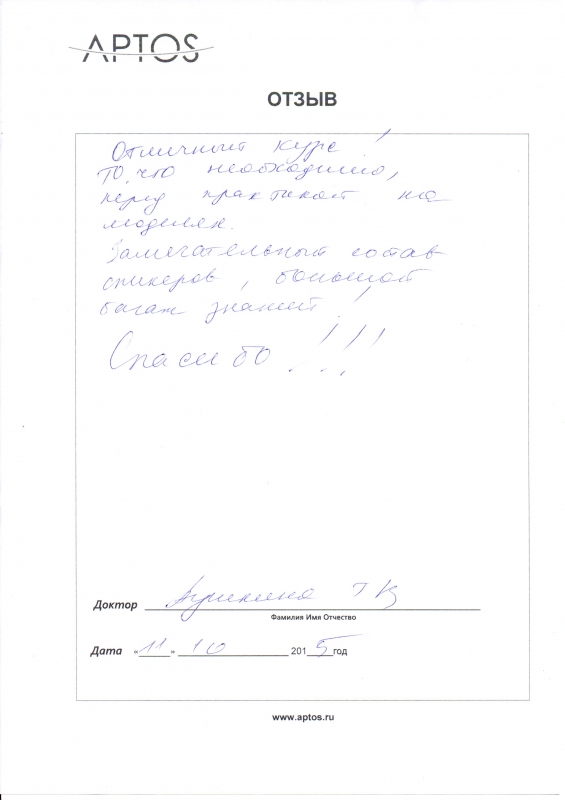 APTOS
ОТЗЫВ
Отличный курс!
То, что необходимо,
перед практикой на
моделях.
Замечательный состав
спикеров, большой
багаж знаний!
Спасибо!!!
Доктор
Фамилия Имя Отчество
Дата «11» 10 2015 год
www.aptos.ru